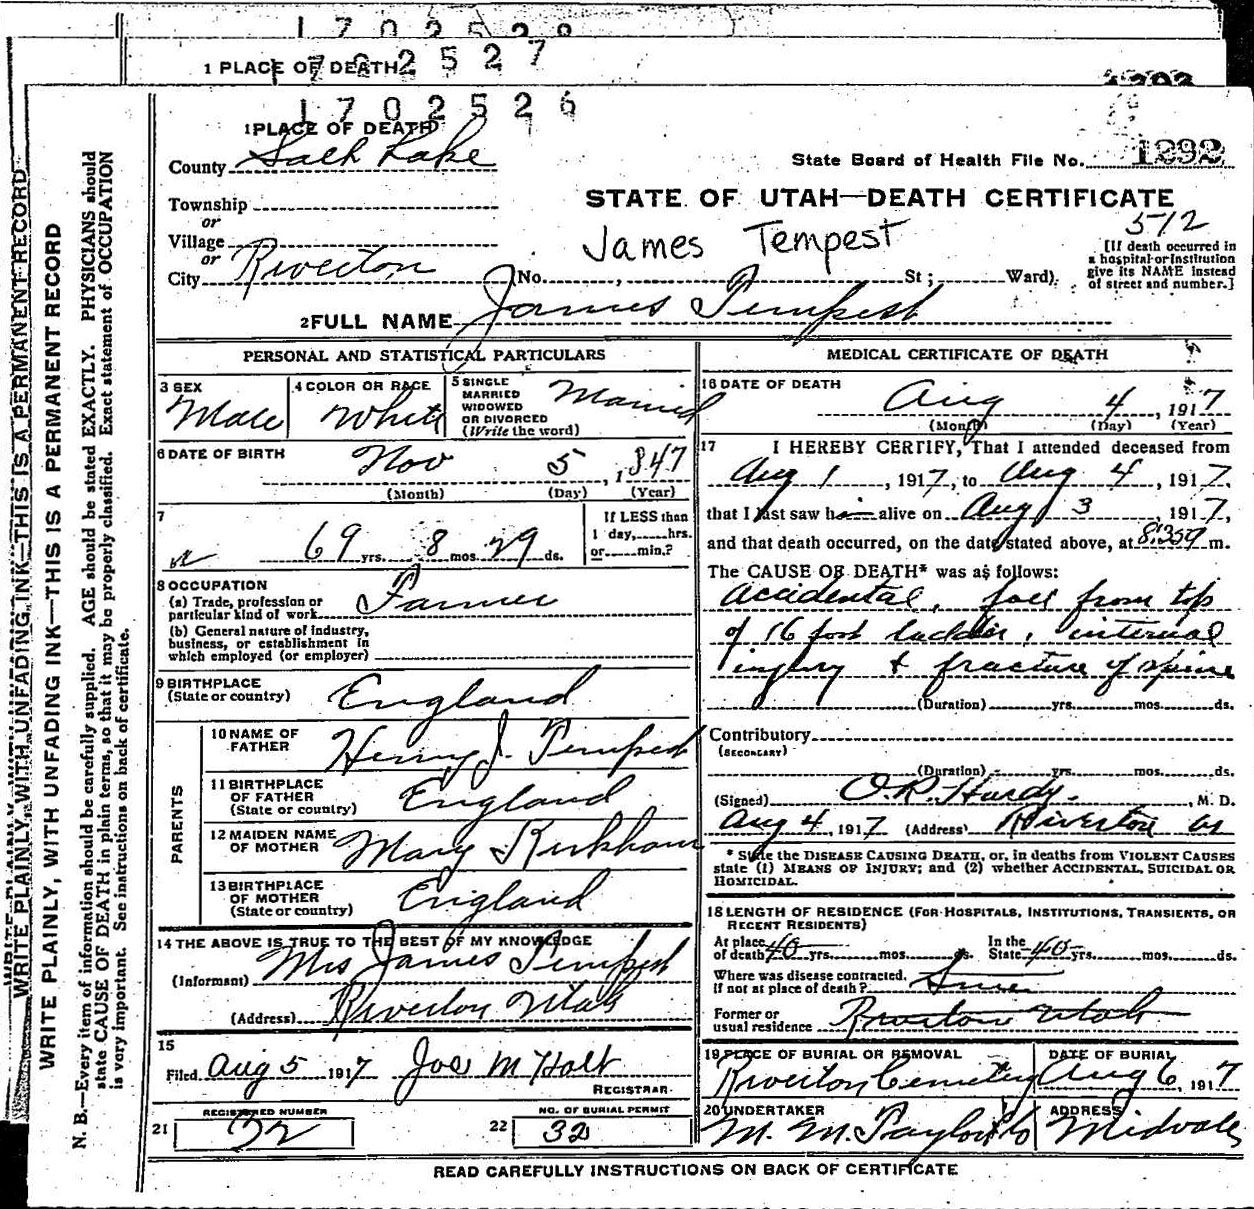 1702528
1702527
1 PLACE OF DEATH
1293
1702526
1 PLACE OF DEATH
County Salt Lake
State Board of Health File No. 1292
STATE OF UTAH—DEATH CERTIFICATE
Township
or
Village
or
City Riverton
James Tempest
512
No. , St; Ward)
[If death occurred in a hospital or institution give its NAME instead of street and number.]
2 FULL NAME James Tempest
PERSONAL AND STATISTICAL PARTICULARS
3 SEX Male
4 COLOR OR RACE White
5 SINGLE MARRIED WIDOWED OR DIVORCED (Write the word) Married
6 DATE OF BIRTH Nov 5, 1847
(Month) (Day) (Year)
7 69 yrs. 8 mos. 29 ds.
If LESS than 1 day, hrs. or min.?
8 OCCUPATION
(a) Trade, profession or particular kind of work Farmer
(b) General nature of industry, business, or establishment in which employed (or employer)
9 BIRTHPLACE (State or country) England
PARENTS
10 NAME OF FATHER Henry J. Tempest
11 BIRTHPLACE OF FATHER (State or country) England
12 MAIDEN NAME OF MOTHER Mary Kirkham
13 BIRTHPLACE OF MOTHER (State or country) England
14 THE ABOVE IS TRUE TO THE BEST OF MY KNOWLEDGE
(Informant) Mrs James Tempest
(Address) Riverton Utah
15
Filed Aug 5 1917 Jos M Holt
REGISTRAR
21 REGISTERED NUMBER 32
22 NO. OF BURIAL PERMIT 32
MEDICAL CERTIFICATE OF DEATH
16 DATE OF DEATH
Aug 4, 1917
(Month) (Day) (Year)
17 I HEREBY CERTIFY, That I attended deceased from
Aug 1, 1917, to Aug 4, 1917,
that I last saw him alive on Aug 3, 1917,
and that death occurred, on the date stated above, at 8:35 m.
The CAUSE OF DEATH* was as follows:
Accidental, fall from top
of 16 foot ladder, internal
injury & fracture of spine
(Duration) yrs. mos. ds.
Contributory
(SECONDARY)
(Duration) yrs. mos. ds.
(Signed) O.R. Hardy, M. D.
Aug 4, 1917 (Address) Riverton
* State the DISEASE CAUSING DEATH, or, in deaths from VIOLENT CAUSES
state (1) MEANS OF INJURY; and (2) whether ACCIDENTAL, SUICIDAL OR
HOMICIDAL.
18 LENGTH OF RESIDENCE (FOR HOSPITALS, INSTITUTIONS, TRANSIENTS, OR
RECENT RESIDENTS)
At place of death 40 yrs. mos. ds. In the State 40 yrs. mos. ds.
Where was disease contracted, if not at place of death?
Former or usual residence Riverton Utah
19 PLACE OF BURIAL OR REMOVAL
Riverton Cemetery
DATE OF BURIAL
Aug 6, 1917
20 UNDERTAKER
M. M. Taylor Co
ADDRESS
Midvale
READ CAREFULLY INSTRUCTIONS ON BACK OF CERTIFICATE
WRITE PLAINLY, WITH UNFADING INK—THIS IS A PERMANENT RECORD
WRITE PLAINLY, WITH UNFADING INK—THIS IS A PERMANENT RECORD
N. B.—Every item of information should be carefully supplied. AGE should be stated EXACTLY. PHYSICIANS should
state CAUSE OF DEATH in plain terms, so that it may be properly classified. Exact statement of OCCUPATION
is very important. See instructions on back of certificate.